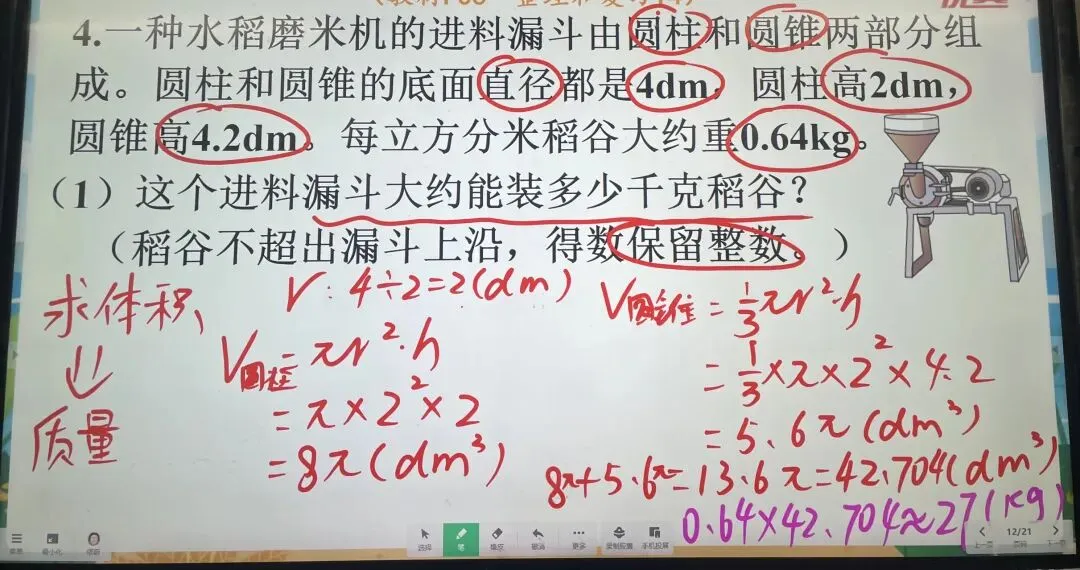 4.一种水稻磨米机的进料漏斗由圆柱和圆锥两部分组
成。圆柱和圆锥的底面直径都是4dm，圆柱高2dm，
圆锥高4.2dm。每立方分米稻谷大约重0.64kg。
（1）这个进料漏斗大约能装多少千克稻谷？
（稻谷不超出漏斗上沿，得数保留整数。）
求体积
质量
r：4÷2=2(dm)
V圆柱=πr²·h
=π×2²×2
=8π(dm³)
V圆锥=1/3πr²·h
=1/3×π×2²×4.2
=5.6π(dm³)
8π+5.6π=13.6π=42.704(dm³)
0.64×42.704≈27(kg)
菜单 最小化
选择 笔 橡皮 撤销 更多 录制胶囊 手机投屏
上一页 12/21 下一页